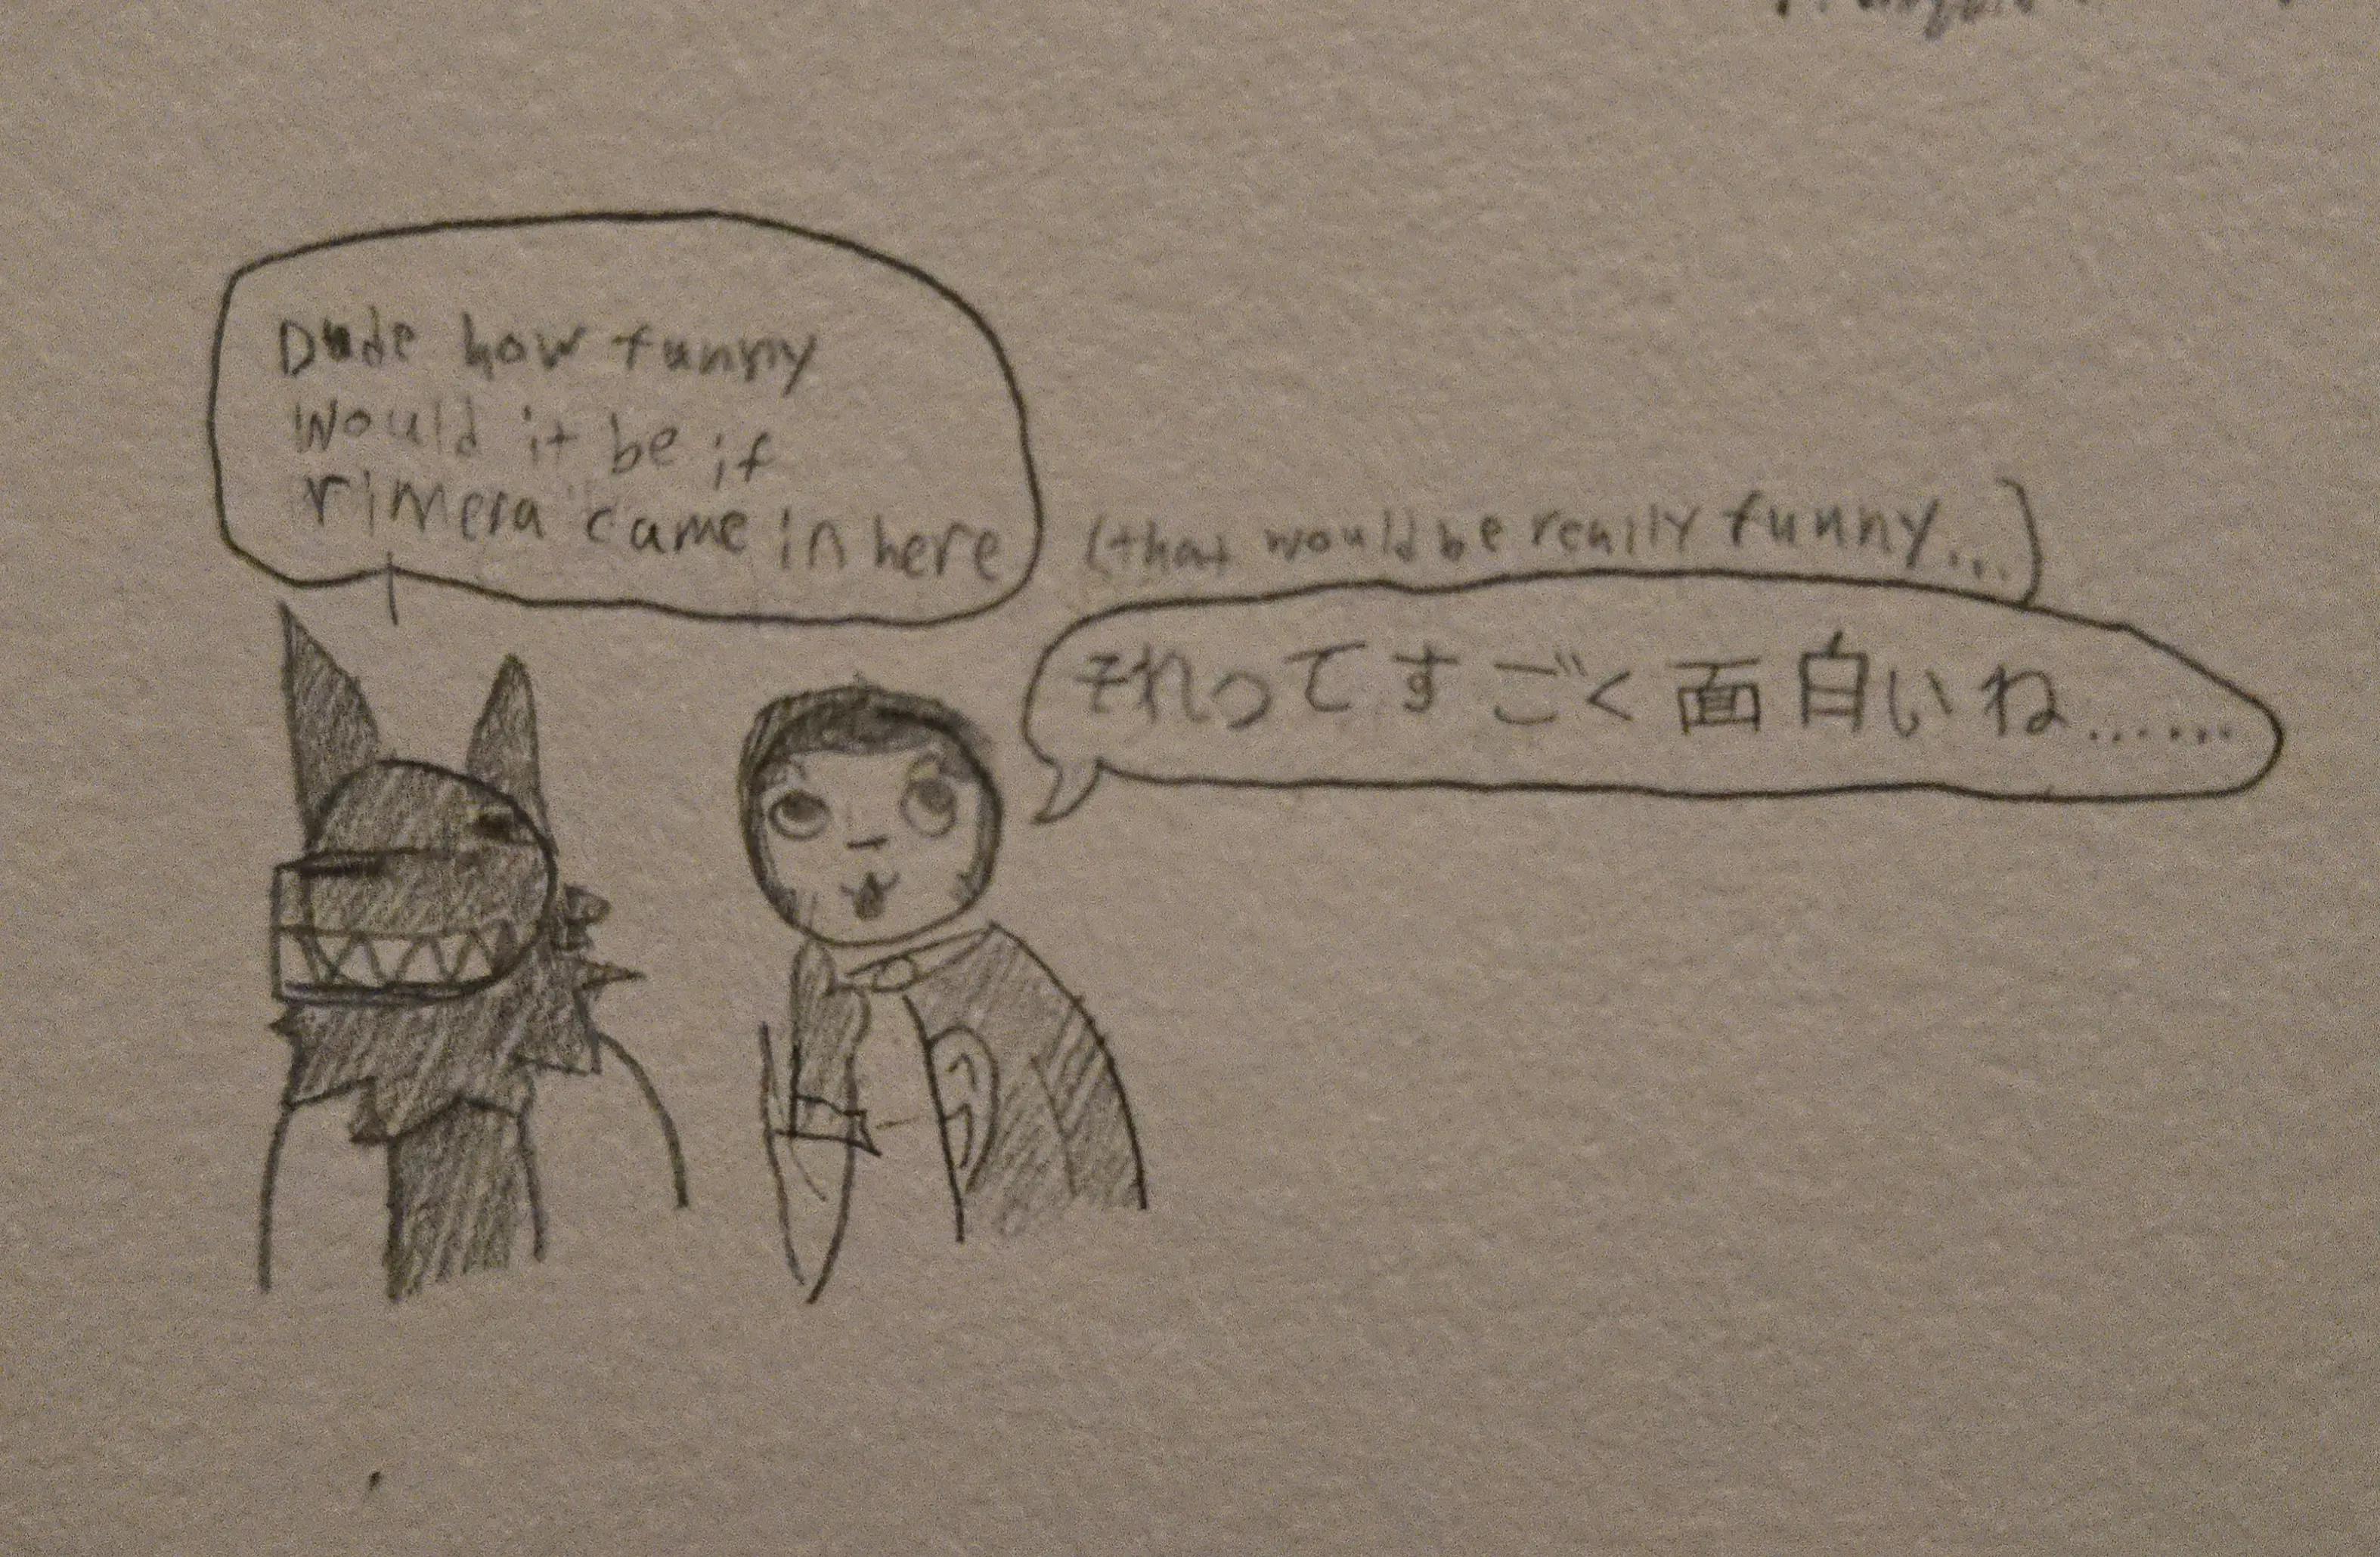 Dude how funny
would it be if
rimera came in here
(that would be really funny...)
それってすごく面白いね......